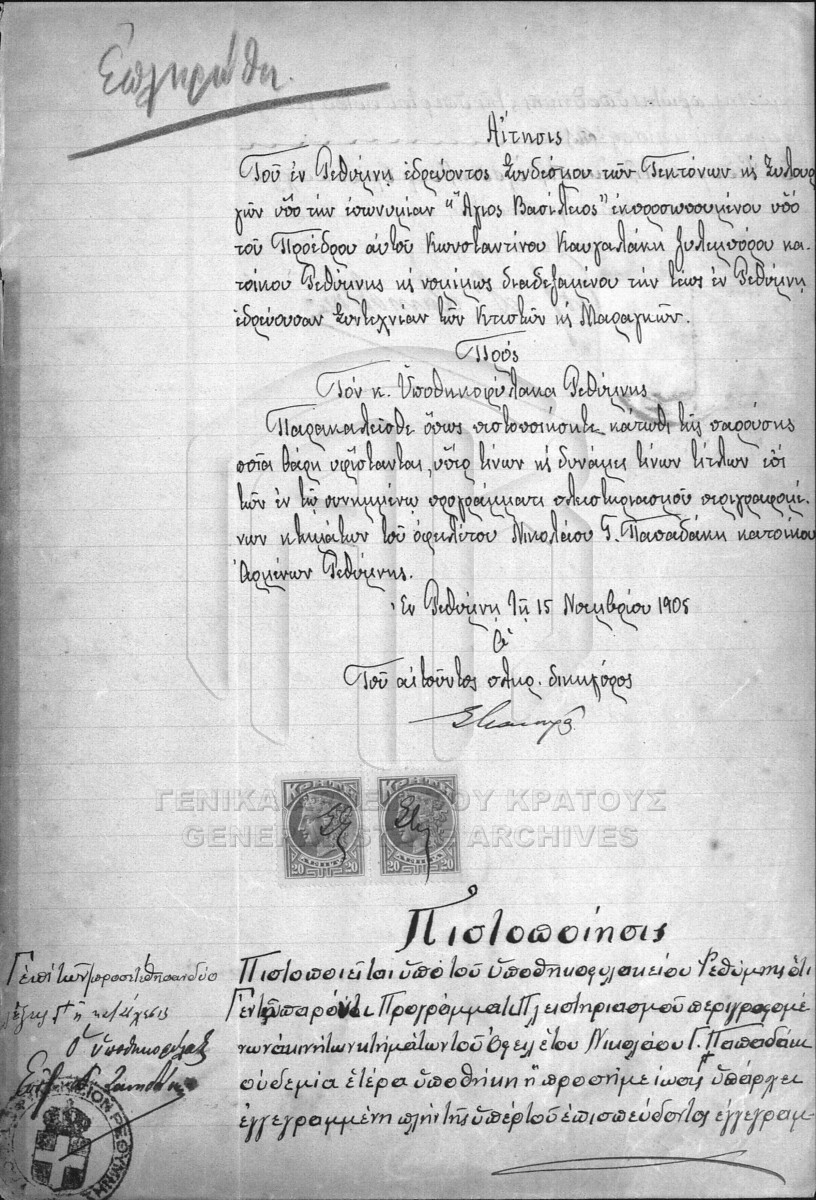 Ἐπληρώθη.
Αἴτησις
Τοῦ ἐν Ρεθύμνῃ ἑδρεύοντος Συνδέσμου τῶν Τεκτόνων κ Ξυλουρ
γῶν ὑπὸ τὴν ἐπωνυμίαν "Ἅγιος Βασίλειος" ἐκπροσωπουμένου ὑπὸ
τοῦ Προέδρου αὐτοῦ Κωνσταντίνου Καυγαλάκη ξυλεμπόρου κα-
τοίκου Ρεθύμνης κ νομίμως διαδεξαμένου τὴν τέως ἐν Ρεθύμνῃ
ἑδρεύουσαν Συντεχνίαν τῶν Κτιστῶν κ Μαραγκῶν.
Πρός
Τὸν κ. Ὑποθηκοφύλακα Ρεθύμνης
Παρακαλεῖσθε ὅπως πιστοποιήσητε κάτωθι τῆς παρούσης
ποῖα βάρη ὑφίστανται, ὑπέρ τίνων κ δυνάμει τίνων τίτλων ἐπὶ
τῶν ἐν τῷ συνημμένῳ προγράμματι πλειστηριασμοῦ περιγραφομέ-
νων κτημάτων τοῦ ὀφειλέτου Νικολάου Γ. Παπαδάκη κατοίκου
Ἀρμένων Ρεθύμνης.
Ἐν Ρεθύμνῃ τῇ 15 Νοεμβρίου 1905
Ὁ
Τοῦ αἰτοῦντος πληρ. δικηγόρος
ΚΡΗΤΗΣ ΚΡΗΤΗΣ
20 ΛΕΠΤΑ 20 20 ΛΕΠΤΑ 20
ΓΕΝΙΚΑ ΑΡΧΕΙΑ ΤΟΥ ΚΡΑΤΟΥΣ
GENERAL STATE ARCHIVES
Πιστοποίησις
Πιστοποιεῖται ὑπὸ τοῦ ὑποθηκοφυλακείου Ρεθύμνης ὅτι
ἐν τῷ παρόντι Προγράμματι Πλειστηριασμοῦ περιγραφομέ
νων ἀκινήτων κτημάτων τοῦ Ὀφειλέτου Νικολάου Γ. Παπαδάκ
οὐδεμία ἑτέρα ὑποθήκη ἢ προσημείωσις ὑπάρχει
ἐγγεγραμμένη πλὴν τῆς ὑπέρ τοῦ ἐπισπεύδοντος ἐγγεγραμ-
ἐπὶ τῶν προσετέθησαν δύο
λέξεις ἢ κατάσχεσις
Ὁ ὑποθηκοφύλαξ